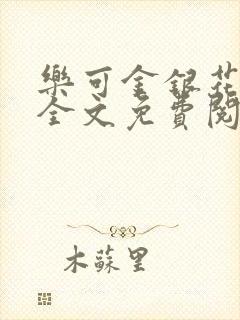 樂可金銀花
全文免費閱
木蘇里